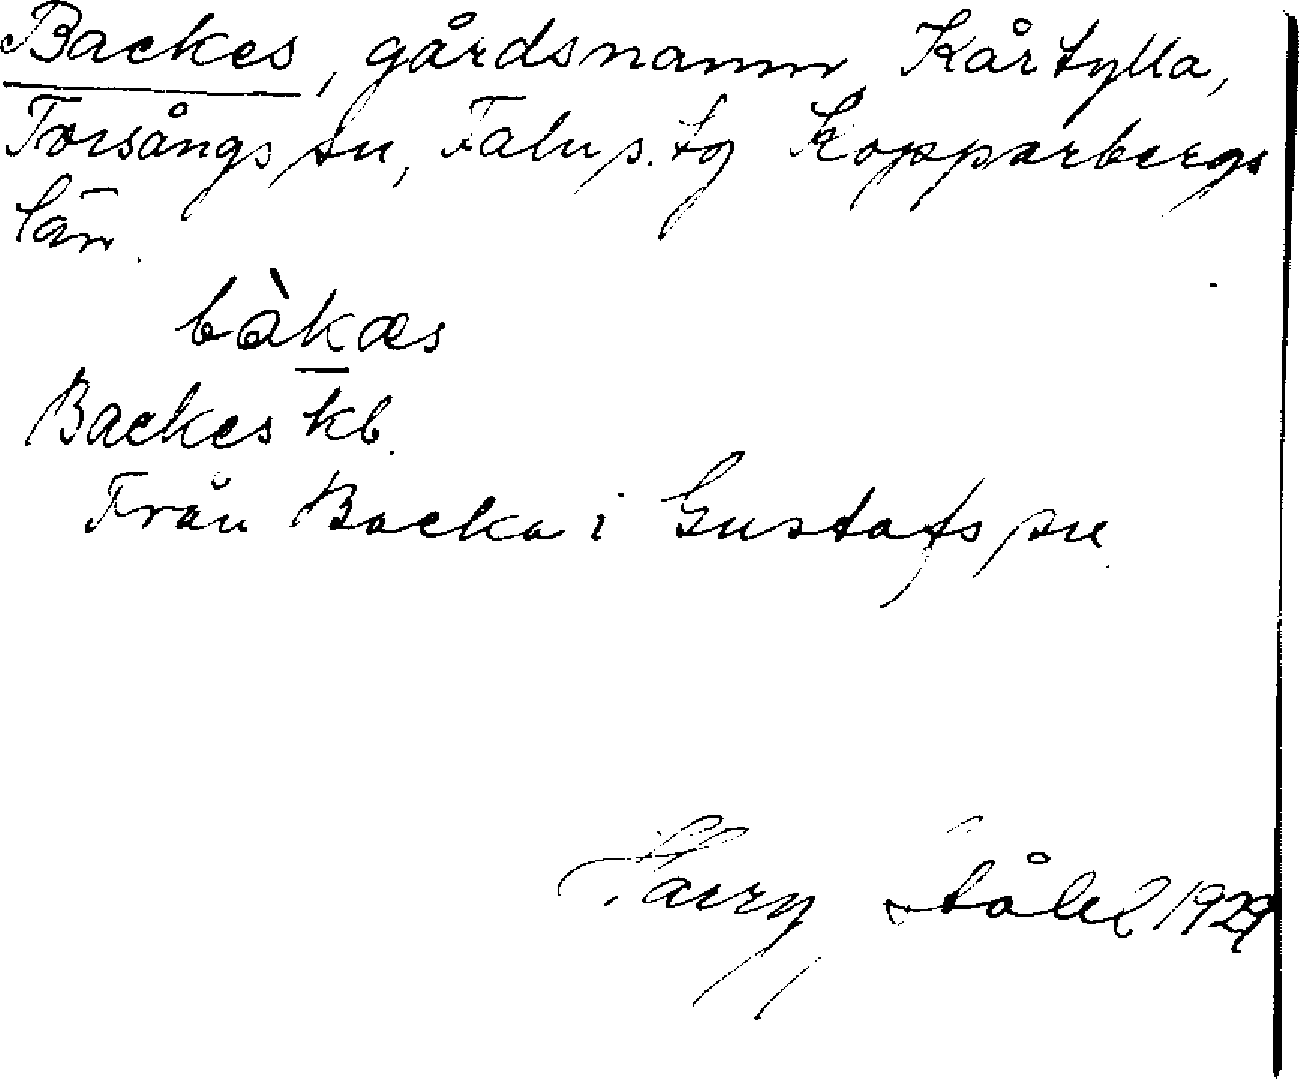 Backes, gårdsnamn, Kårtylla,
Torsångs sn, Falu s. tg Kopparbergs
län.
bàkæs
Backes kb.
Från Backa i Gustafs sn.
Harry Ståhl 1929